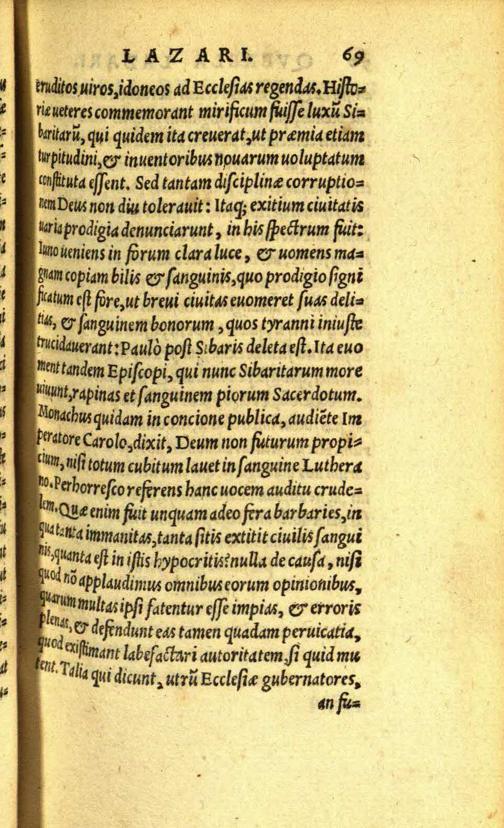 LAZARI. 69
eruditos uiros, idoneos ad Ecclesias regendas. Histo=
riæ ueteres commemorant mirificum fuisse luxũ Si=
baritarũ, qui quidem ita creuerat, ut præmia etiam
turpitudini, & inuentoribus nouarum uoluptatum
constituta essent. Sed tantam disciplinæ corruptio=
nem Deus non diu tolerauit: Itaq; exitium ciuitatis
uaria prodigia denunciarunt, in his spectrum fuit:
Iuno ueniens in forum clara luce, & uomens ma=
gnam copiam bilis & sanguinis, quo prodigio signi
ficatum est fore, ut breui ciuitas euomeret suas deli=
tias, & sanguinem bonorum, quos tyranni iniuste
trucidauerant: Paulò post Sibaris deleta est. Ita euo
ment tandem Episcopi, qui nunc Sibaritarum more
uiuunt, rapinas et sanguinem piorum Sacerdotum.
Monachus quidam in concione publica, audiẽte Im
peratore Carolo, dixit, Deum non futurum propi=
cium, nisi totum cubitum lauet in sanguine Luthera
no. Perhorresco referens hanc uocem auditu crude=
lem. Quæ enim fuit unquam adeo fera barbaries, in
qua tanta immanitas, tanta sitis extitit ciuilis sangui
nis, quanta est in istis hypocritis? nulla de causa, nisi
quod nõ applaudimus omnibus eorum opinionibus,
quarum multas ipsi fatentur esse impias, & erroris
plenas, & defendunt eas tamen quadam peruicatia,
quod existimant labefactari autoritatem, si quid mu
tent. Talia qui dicunt, utrũ Ecclesiæ gubernatores,
an fu=